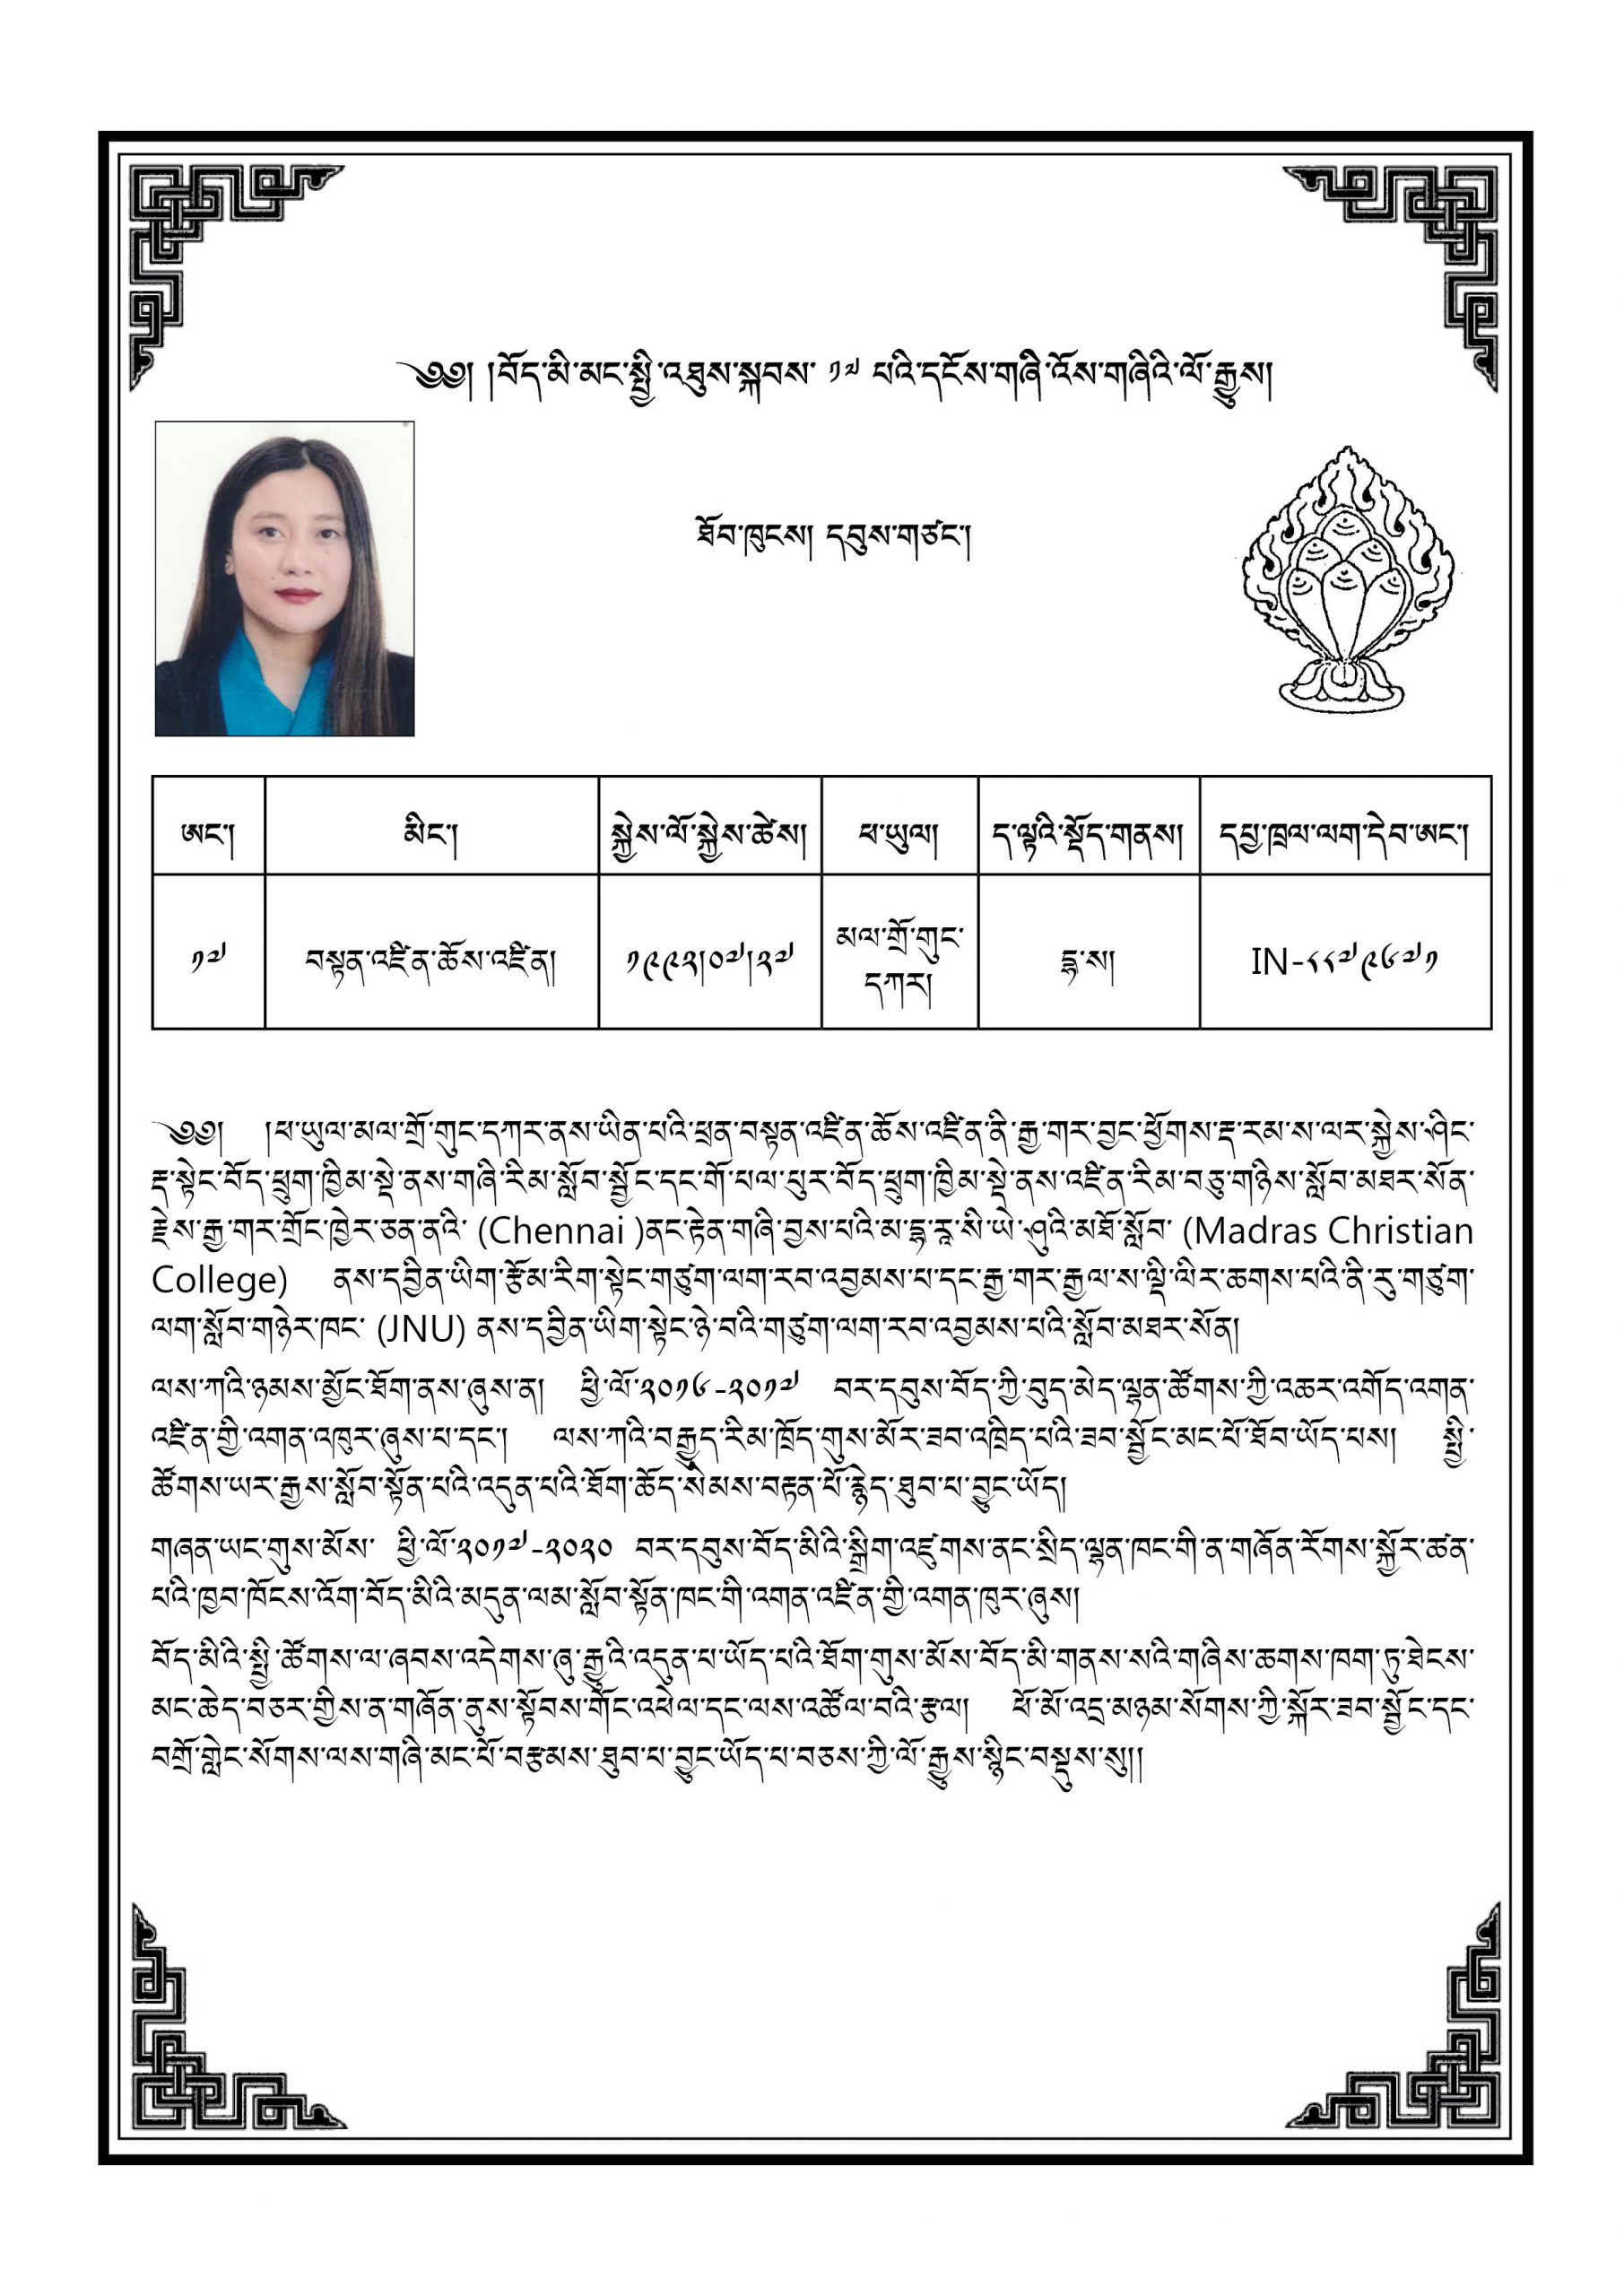 ༄༅། །བོད་མི་མང་སྤྱི་འཐུས་སྐབས་ ༡༧ པའི་དངོས་གཞི་འོས་གཞིའི་ལོ་རྒྱུས།
ཐོབ་ཁུངས། དབུས་གཙང་།
ཨང་། མིང་། སྐྱེས་ལོ་སྐྱེས་ཚེས། ཕ་ཡུལ། ད་ལྟའི་སྡོད་གནས། དཔྱ་ཁྲལ་ལག་དེབ་ཨང་།
༡༧ བསྟན་འཛིན་ཆོས་འཛིན། ༡༩༩༢།༠༧།༢༧ མལ་གྲོ་གུང་
དཀར། དྷ་ས། IN-༨༨༧༩༦༧༡
༄༅། །ཕ་ཡུལ་མལ་གྲོ་གུང་དཀར་ནས་ཡིན་པའི་ཕྲན་བསྟན་འཛིན་ཆོས་འཛིན་ནི་རྒྱ་གར་བྱང་ཕྱོགས་རྡ་རམ་ས་ལར་སྐྱེས་ཤིང་
རྡ་སྟེང་བོད་ཕྲུག་ཁྱིམ་སྡེ་ནས་གཞི་རིམ་སློབ་སྦྱོང་དང་གོ་པལ་པུར་བོད་ཕྲུག་ཁྱིམ་སྡེ་ནས་འཛིན་རིམ་བཅུ་གཉིས་སློབ་མཐར་སོན་
རྗེས་རྒྱ་གར་གྲོང་ཁྱེར་ཅན་ནའི་ (Chennai )ནང་རྟེན་གཞི་བྱས་པའི་མ་དྷ་རཱ་སི་ཡེ་ཤུའི་མཐོ་སློབ་ (Madras Christian
College) ནས་དབྱིན་ཡིག་རྩོམ་རིག་སྟེང་གཙུག་ལག་རབ་འབྱམས་པ་དང་རྒྱ་གར་རྒྱལ་ས་ལྡི་ལིར་ཆགས་པའི་ནི་རུ་གཙུག་
ལག་སློབ་གཉེར་ཁང་ (JNU) ནས་དབྱིན་ཡིག་སྟེང་ཉེ་བའི་གཙུག་ལག་རབ་འབྱམས་པའི་སློབ་མཐར་སོན།
ལས་ཀའི་ཉམས་མྱོང་ཐོག་ནས་ཞུས་ན། ཕྱི་ལོ་༢༠༡༦-༢༠༡༧ བར་དབུས་བོད་ཀྱི་བུད་མེད་ལྷན་ཚོགས་ཀྱི་འཆར་འགོད་འགན་
འཛིན་གྱི་འགན་འཁུར་ཞུས་པ་དང་། ལས་ཀའི་བརྒྱུད་རིམ་ཁྲོད་གུས་མོར་ཟབ་འཁྲིད་པའི་ཟབ་སྦྱོང་མང་པོ་ཐོབ་ཡོད་པས། སྤྱི་
ཚོགས་ཡར་རྒྱས་སློབ་སྟོན་པའི་འདུན་པའི་ཐོག་ཆོད་སེམས་བརྟན་པོ་རྙེད་ཐུབ་པ་བྱུང་ཡོད།
གཞན་ཡང་གུས་མོས་ ཕྱི་ལོ་༢༠༡༧-༢༠༢༠ བར་དབུས་བོད་མིའི་སྒྲིག་འཛུགས་ནང་སྲིད་ལྷན་ཁང་གི་ན་གཞོན་རོགས་སྐྱོར་ཚན་
པའི་ཁྱབ་ཁོངས་འོག་བོད་མིའི་མདུན་ལམ་སློབ་སྟོན་ཁང་གི་འགན་འཛིན་གྱི་འགན་ཁུར་ཞུས།
བོད་མིའི་སྤྱི་ཚོགས་ལ་ཞབས་འདེགས་ཞུ་རྒྱུའི་འདུན་པ་ཡོད་པའི་ཐོག་གུས་མོས་བོད་མི་གནས་སའི་གཞིས་ཆགས་ཁག་ཏུ་ཐེངས་
མང་ཆེད་བཅར་གྱིས་ན་གཞོན་ནུས་སྟོབས་གོང་འཕེལ་དང་ལས་འཚོལ་བའི་རྩལ། ཕོ་མོ་འདྲ་མཉམ་སོགས་ཀྱི་སྐོར་ཟབ་སྦྱོང་དང་
བགྲོ་གླེང་སོགས་ལས་གཞི་མང་པོ་བརྩམས་ཐུབ་པ་བྱུང་ཡོད་པ་བཅས་ཀྱི་ལོ་རྒྱུས་སྙིང་བསྡུས་སུ།།